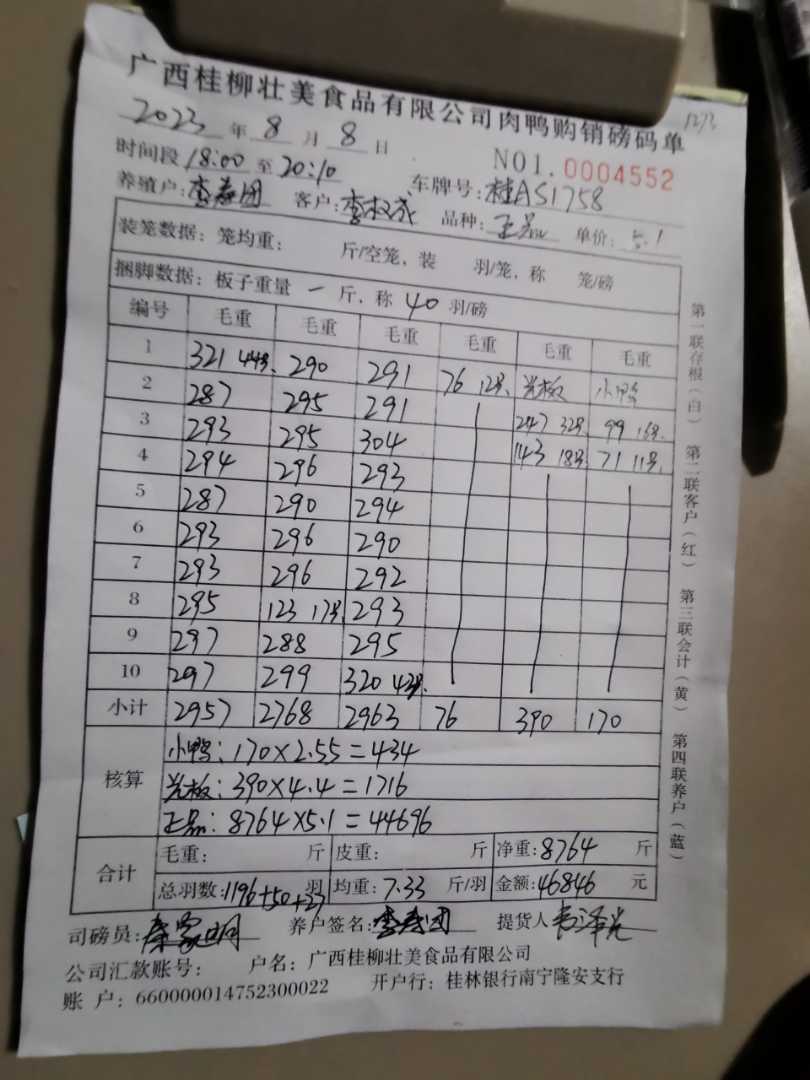 广西桂柳壮美食品有限公司肉鸭购销磅码单
1273
2023 年 8 月 8 日
NO1. 0004552
时间段 18:00 至 20:10 车牌号: 桂AS1758
养殖户: 李春团 客户: 李权成 品种: 正品 单价: 5.1
装笼数据: 笼均重: 斤/空笼、装 羽/笼, 称 笼/磅
捆脚数据: 板子重量 一 斤, 称 40 羽/磅
编号 毛重 毛重 毛重 毛重 毛重 毛重
1 321 44羽. 290 291 76 12羽. 光板 小鸭
2 287 295 291 247 32羽. 99 16羽.
3 293 295 304 143 18羽 71 11羽.
4 294 296 293
5 287 290 294
6 293 296 290
7 293 296 292
8 295 123 17羽 293
9 297 288 295
10 297 299 320 43羽.
小计 2957 2768 2963 76 390 170
核算
小鸭: 170×2.55=434
光板: 390×4.4=1716
正品: 8764×5.1=44696
合计
毛重: 斤 皮重: 斤 净重: 8764 斤
总羽数: 1196+50+27 羽 均重: 7.33 斤/羽 金额: 46846 元
司磅员: 养户签名: 李春团 提货人
公司汇款账号: 户名: 广西桂柳壮美食品有限公司
账 户: 660000014752300022 开户行: 桂林银行南宁隆安支行
第一联存根(白) 第二联客户(红) 第三联会计(黄) 第四联养户(蓝)